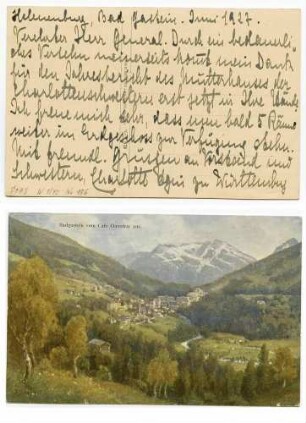 Helenenburg, Bad Gastein. Juni 1927.
Verehrter Herr General. Durch ein bedauerli-
ches Versehen meinerseits kommt mein Dank
für den Jahresbericht des Mutterhauses der
Charlottenschwestern erst jetzt in Ihre Hände
Ich freue mich sehr, dass nun bald 5 Räume
weiter im Erdgeschoss zur Verfügung stehn.
Mit freundl. Grüssen an Vorstand und
Schwestern, Charlotte Kgin zu Württemberg
Badgastein vom Café